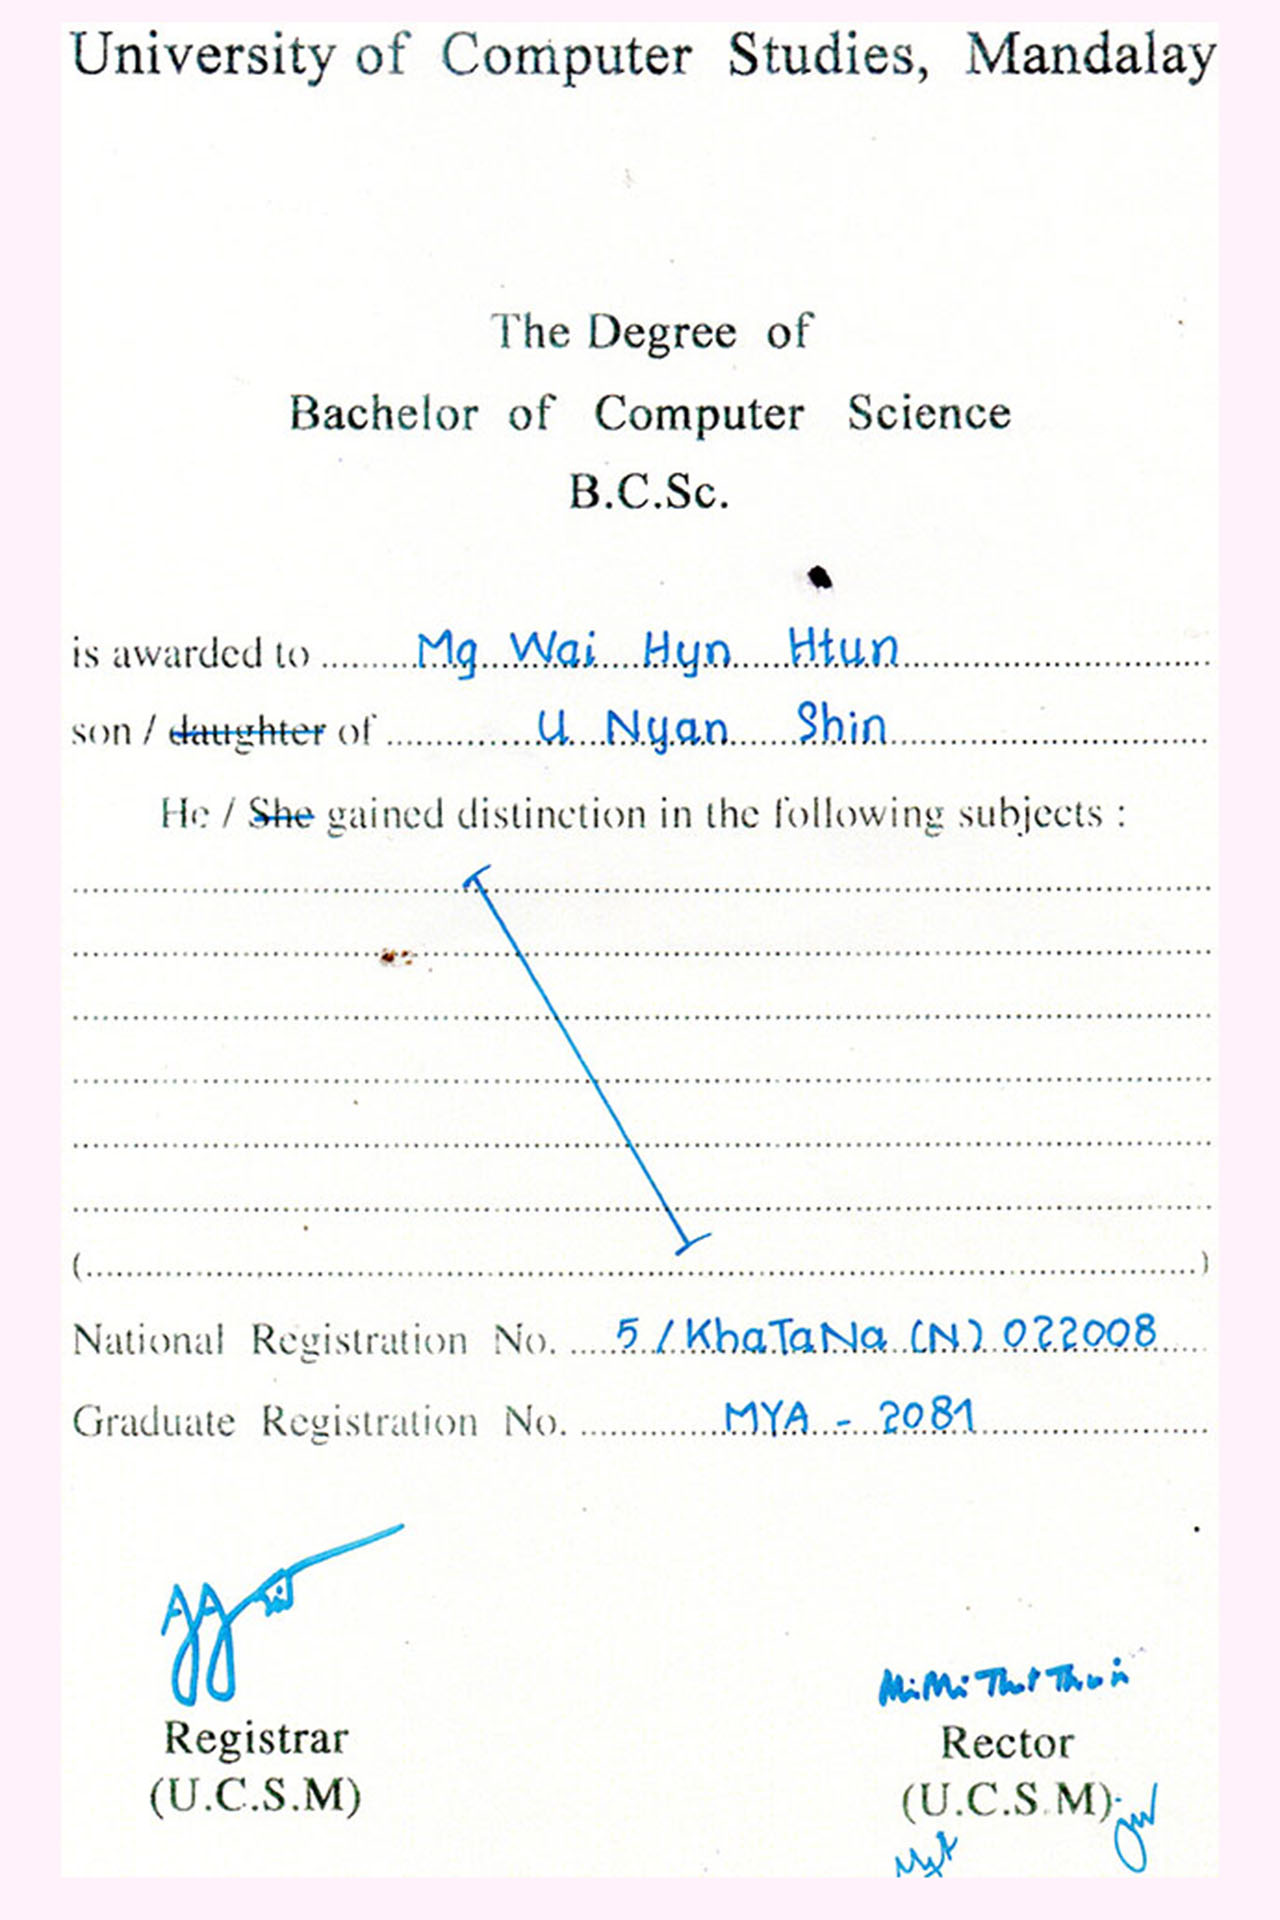 University of Computer Studies, Mandalay
The Degree of
Bachelor of Computer Science
B.C.Sc.
is awarded to Mg Wai Hyn Htun
son / daughter of U Nyan Shin
He / She gained distinction in the following subjects :
(........................)
National Registration No. 5 / KhaTaNa (N) 022008
Graduate Registration No. MYA - 2081
Registrar
(U.C.S.M)
Rector
(U.C.S.M)